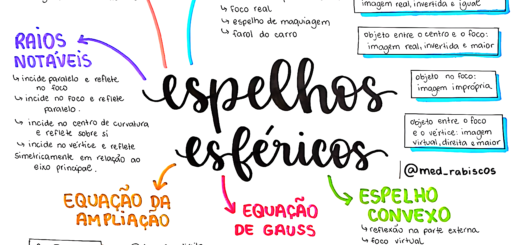 ↳ foco real
↳ espelho de maquiagem
↳ farol do carro
imagem real, invertida e igual
objeto entre o centro e o foco:
imagem real, invertida e maior
objeto no foco:
imagem imprópria
objeto entre o foco
e o vértice: imagem
virtual, direita e maior
RAIOS
NOTÁVEIS
↳ incide paralelo e reflete
no foco
↳ incide no foco e reflete
paralelo.
↳ incide no centro de curvatura
e reflete sobre si
↳ incide no vértice e reflete
simetricamente em relação ao
eixo principal.
espelhos
esféricos
@med_rabiscos
EQUAÇÃO DA
AMPLIAÇÃO
EQUAÇÃO
DE GAUSS
ESPELHO
CONVEXO
↳ reflexão na parte externa
↳ foco virtual